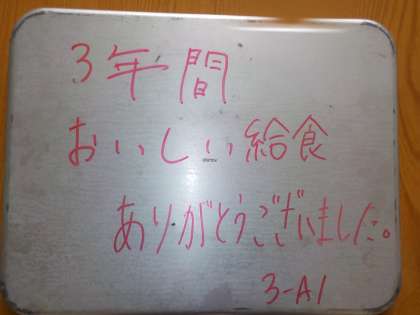 3年間
おいしい給食
ありがとうございました。
3-A1